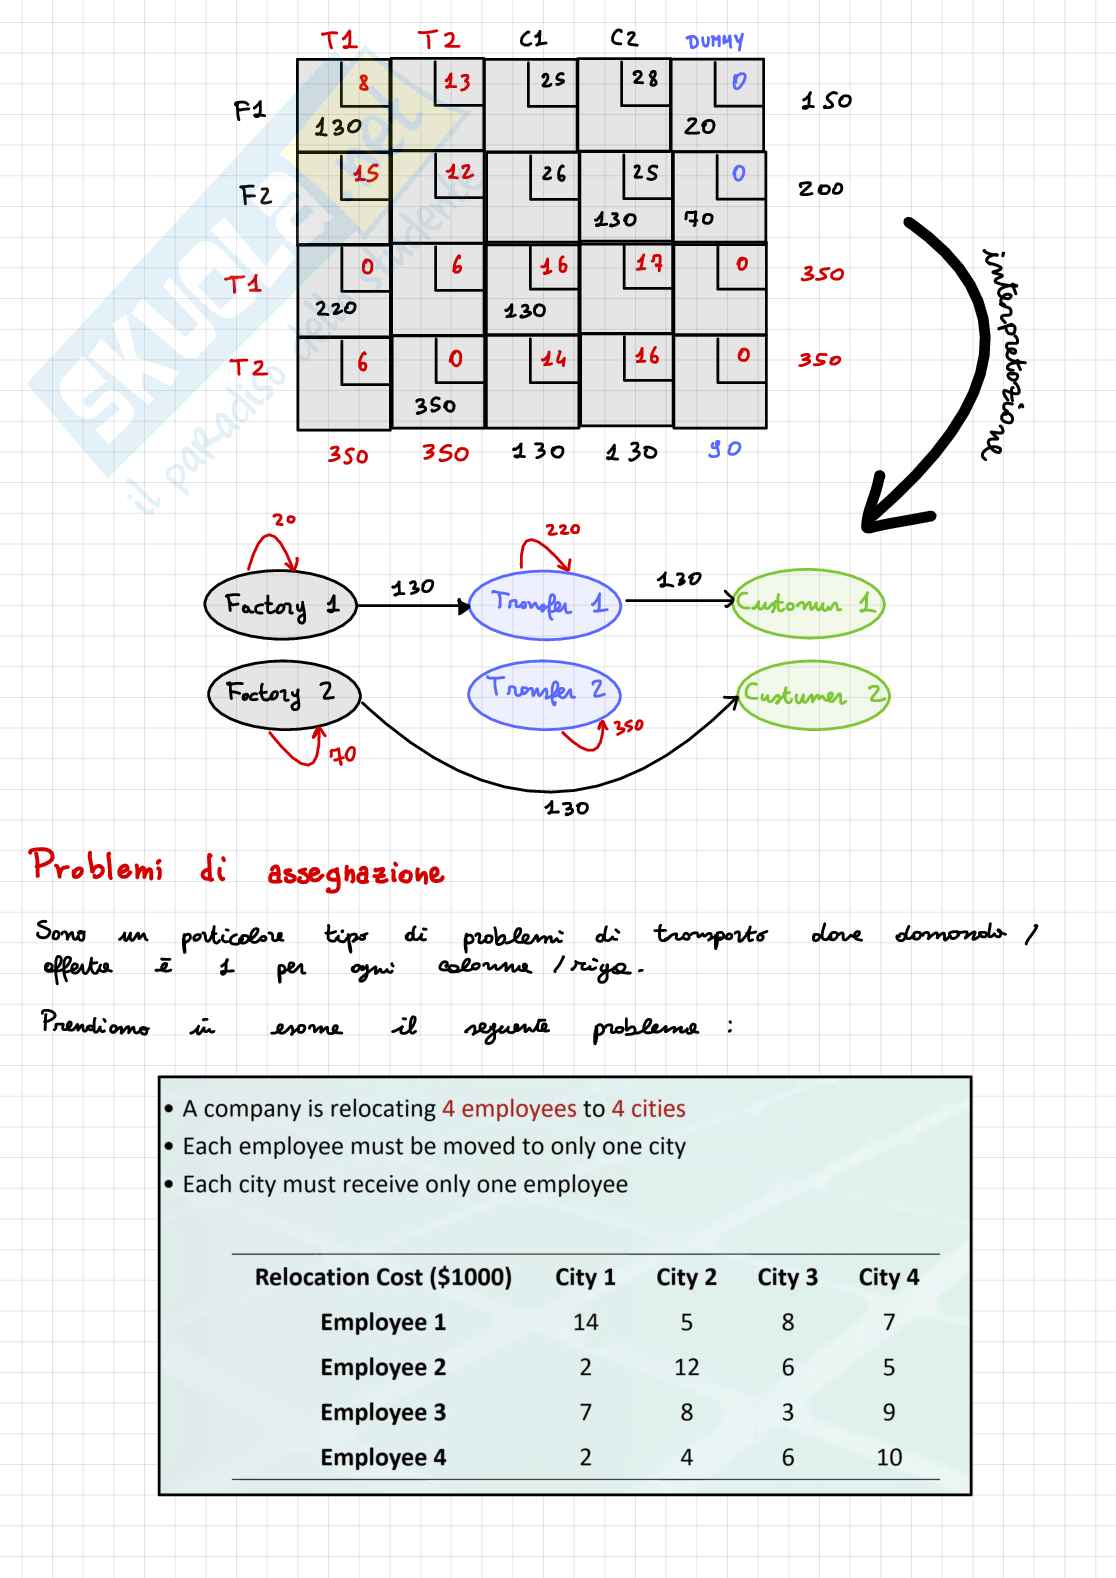 T1 T2 C1 C2 DUMMY
F1 8 13 25 28 0 150
130 20
F2 15 12 26 25 0 200
130 70
T1 0 6 16 17 0 350
220 130
T2 6 0 14 16 0 350
350
350 350 130 130 90
interpretazione
SKUOLA.net
il paradiso dello studente
20 220
Factory 1 130 Transfer 1 130 Customer 1
Factory 2 Transfer 2 Custumer 2
70 350
130
Problemi di assegnazione
Sono un particolare tipo di problemi di trasporto dove domanda /
offerta è 1 per ogni colonna / riga.
Prendiamo in esame il seguente problema :
• A company is relocating 4 employees to 4 cities
• Each employee must be moved to only one city
• Each city must receive only one employee
Relocation Cost ($1000) City 1 City 2 City 3 City 4
Employee 1 14 5 8 7
Employee 2 2 12 6 5
Employee 3 7 8 3 9
Employee 4 2 4 6 10